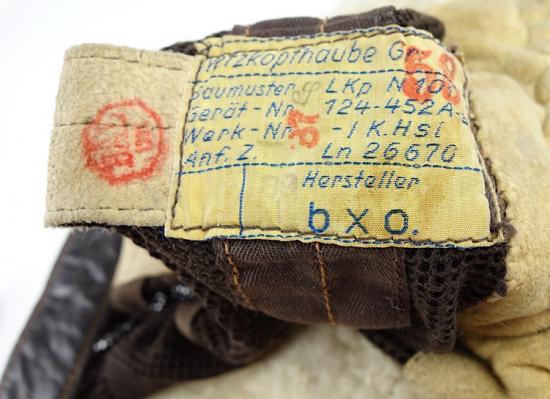 Netzkopfhaube Gr. 58
Baumuster LKp N 101
Gerät-Nr. 124-452A-2
Werk-Nr. -1 K.Hsi
Anf. Z. Ln 26670
Hersteller
bxo.